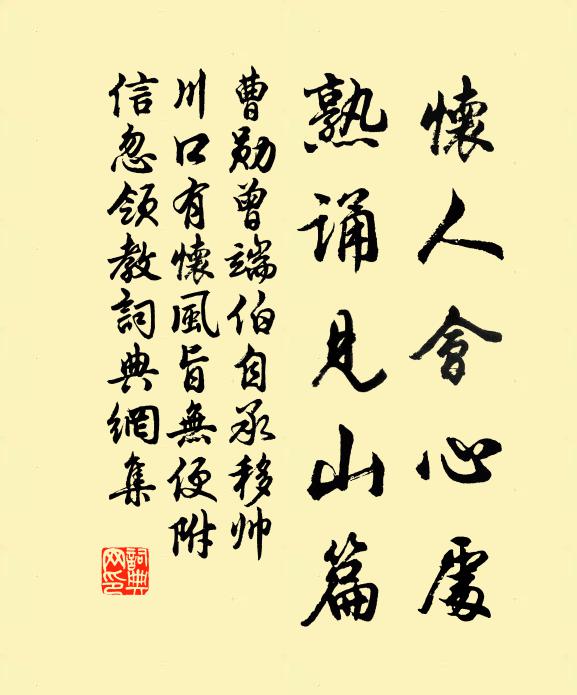 懷人會心處
熟誦見山篇
曹勛曾端伯自承移帅
川口有懷風旨無便附
信忽领教詞典網集
詞典网印